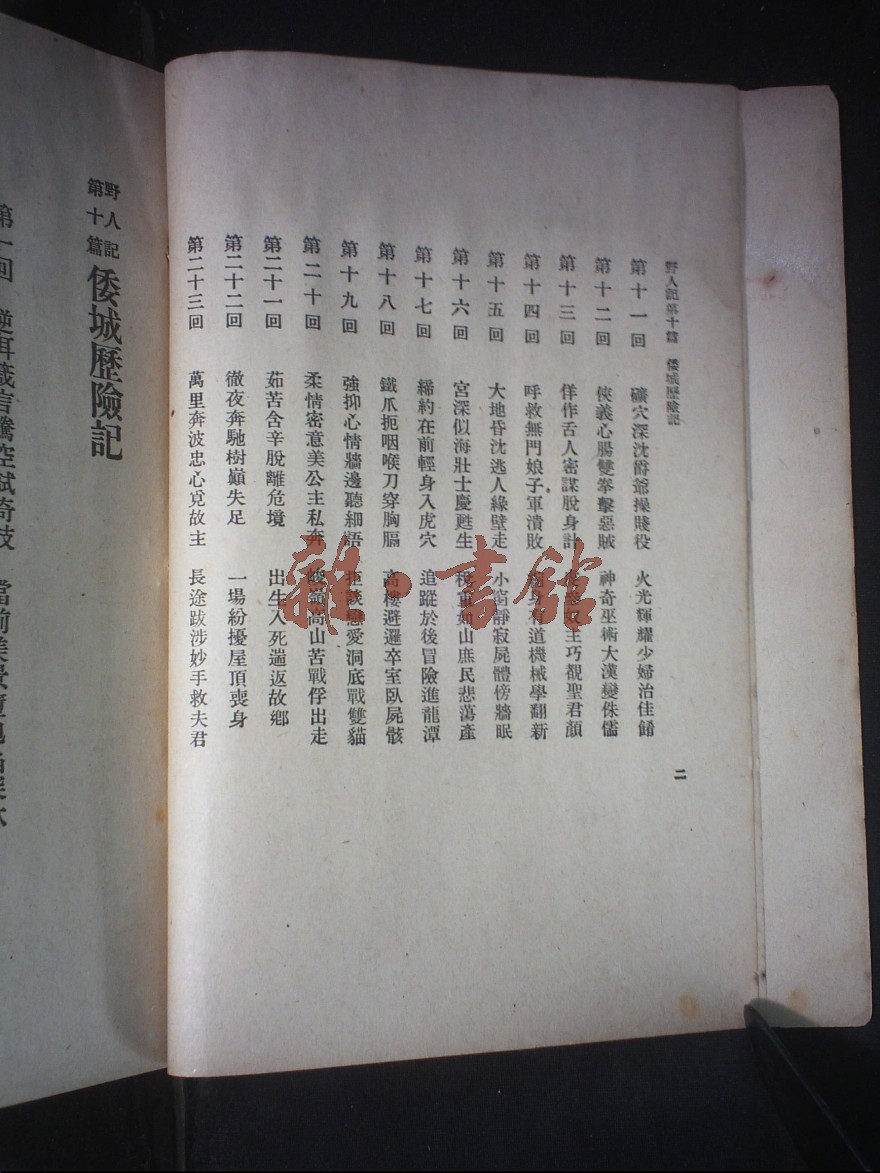 野人記第十篇 倭城歷險記
第十一回 礦穴深沈爵爺操賤役 火光輝耀少婦治佳餚
第十二回 俠義心腸雙拳擊惡賊 神奇巫術大漢變侏儒
第十三回 佯作舌人密謀脫身計 奴主巧覩聖君顏
第十四回 呼救無門娘子軍潰敗 身有道機械學翻新
第十五回 大地昏沈逃人緣壁走 小窗靜寂屍體傍牆眠
第十六回 宮深似海壯士慶甦生 稅重如山庶民悲蕩產
第十七回 綈約在前輕身入虎穴 追蹤於後冒險進龍潭
第十八回 鐵爪扼咽喉刀穿胸膈 高樓避邏卒室臥屍骸
第十九回 強抑心情牆邊聽細語 拒談戀愛洞底戰雙貓
第二十回 柔情密意美公主私奔 峻嶺高山苦戰俘出走
第二十一回 茹苦含辛脫離危境 出生入死遄返故鄉
第二十二回 徹夜奔馳樹巔失足 一場紛擾屋頂喪身
第二十三回 萬里奔波忠心覓故主 長途跋涉妙手救夫君
二
野人記
第十篇
倭城歷險記
第一回 逆耳箴言騰空試奇技
雜·書館